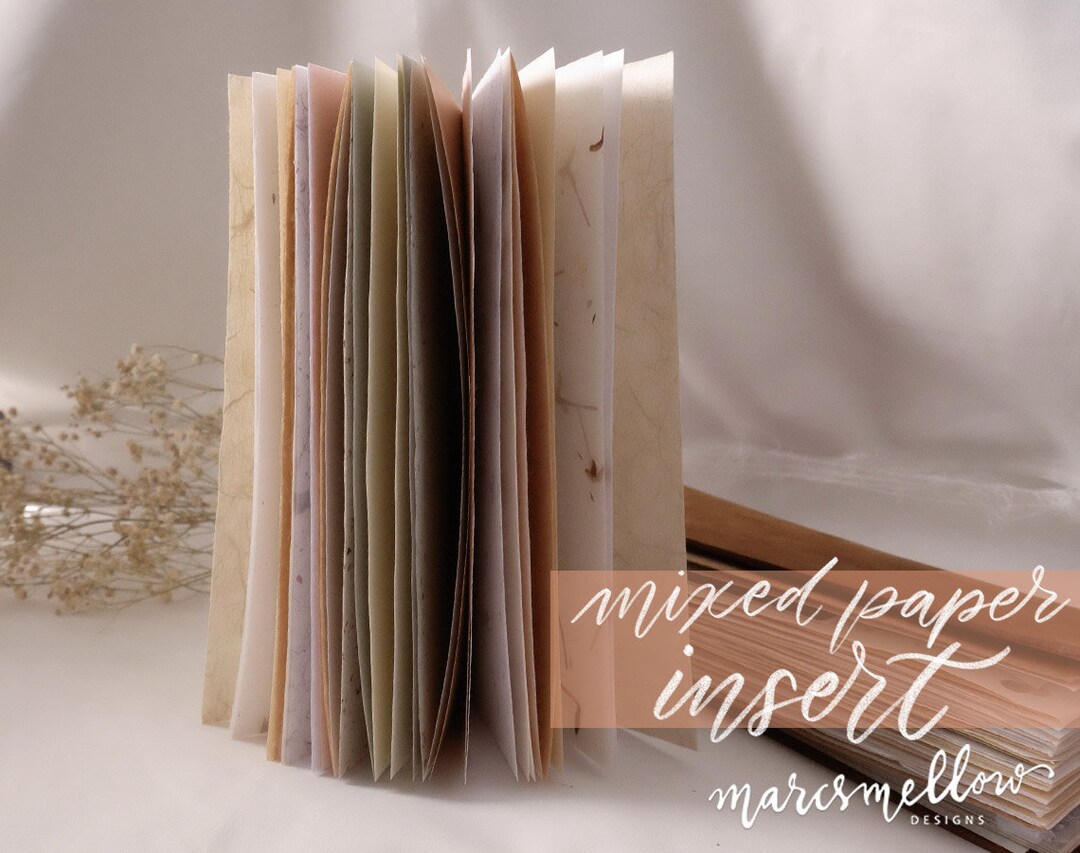 mixed paper
insert
marcsmellow
DESIGNS